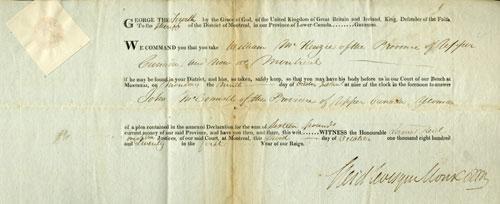 GEORGE THE Fourth by the Grace of God, of the United Kingdom of Great Britain and Ireland, King, Defender of the Faith.
To the Sheriff of the District of Montreal, in our Province of Lower-Canada, GREETING.
WE COMMAND you that you take William McKenzie of the Province of Upper
Canada, now at Montreal
if he may be found in your District, and him, so taken, safely keep, so that you may have his body before us in our Court of our Bench at
Montreal, on Monday the Ninth day of October at nine of the clock in the forenoon to answer
John McConnell of the Province of Upper Canada Yeoman
of a plea contained in the annexed Declaration for the sum of Sixteen pounds
current money of our said Province, and have you then, and there, this writ. WITNESS the Honourable James Reid
Justice, of our said Court, at Montreal, this third day of October one thousand eight hundred
and twenty in the first Year of our Reign.
Reid Levesque Monk